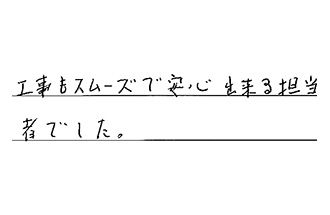 工事もスムーズで安心出来る担当
者でした。